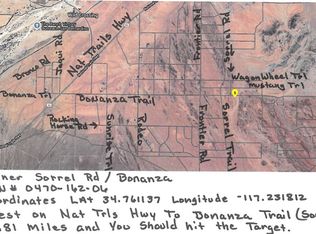 Nat Trails Hwy
Jaqui Rd
Bruno Rd
Frontier Rd
Sorrel Rd
Wagon Wheel Trl
Mustang Trl
Bonanza Trl
Bonanza Trail
Rocking Horse Rd
Sunrise Trl
Rodeo
Frontier Rd
Sorrel Trail
ner Sorrel Rd / Bonanza
N# 0470-162-06
ordinates LAt 34.761137 Longitude -117.231812
est on Nat Trls Hwy To Bonanza Trail (So
81 Miles and You Should hit the Target.